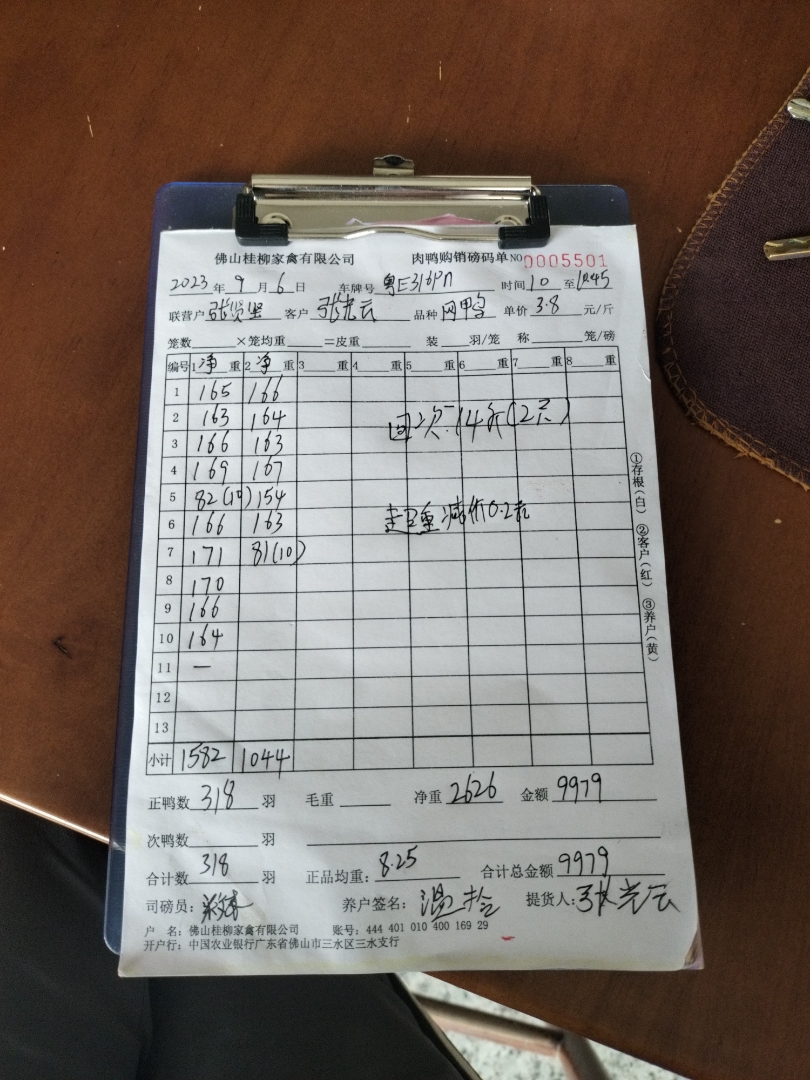 佛山桂柳家禽有限公司 肉鸭购销磅码单 NO 0005501
2023年9月6日 车牌号 粤E 时间10至10:45
联营户 张贤坚 客户 张光云 品种 网鸭 单价3.8元/斤
笼数 ×笼均重 =皮重 装 羽/笼 称 笼/磅
编号 1净重 2净重 3 重 4 重 5 重 6 重 7 重 8 重
1 165 166
2 163 164
回次 14斤(2只)
3 166 163
4 169 167
5 82(10) 154
6 166 163
超重减价0.2元
7 171 81(10)
8 170
9 166
10 164
11 —
12
13
小计 1582 1044
①存根(白) ②客户(红) ③养户(黄)
正鸭数 318 羽 毛重 净重 2626 金额 9979
次鸭数 羽
合计数 318 羽 正品均重: 8.25 合计总金额 9979
司磅员: 养户签名: 温 提货人: 张光云
户 名: 佛山桂柳家禽有限公司 账号: 444 401 010 400 169 29
开户行: 中国农业银行广东省佛山市三水区三水支行